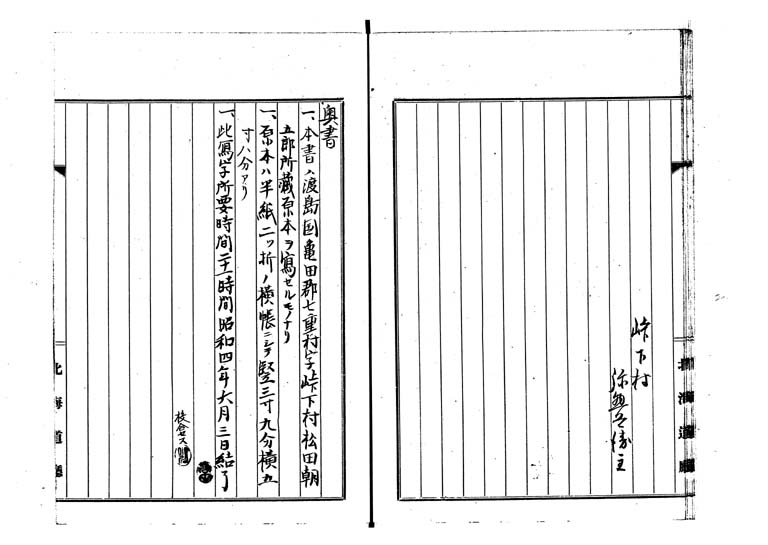 峠下村
奥書
一、本書ハ渡島国亀田郡七重村字峠下村松田朝
五郎所蔵原本ヲ寫セルモノナリ
一、原本ハ半紙二ツ折ノ横帳ニシテ竪三寸九分横五
寸八分アリ
一、此寫字所要時間二十一時間昭和四年六月三日結了
校合セス
北海道廳